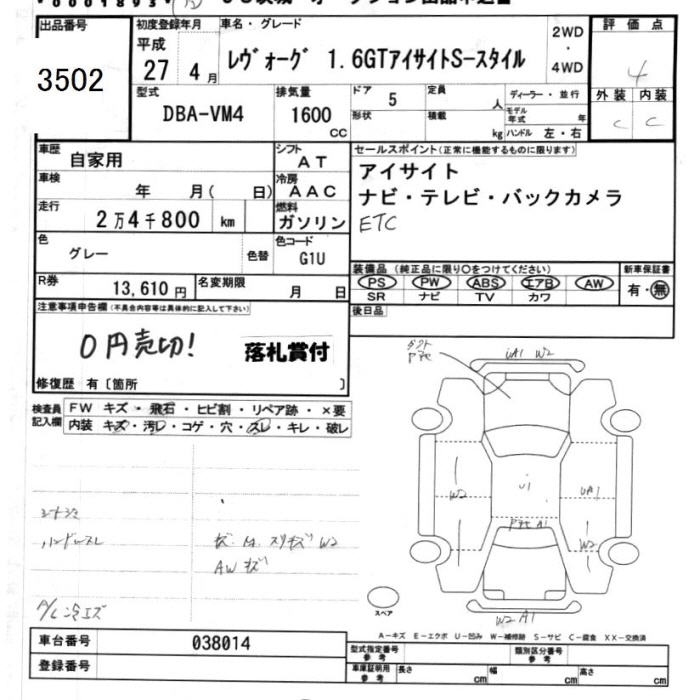 出品番号
3502
初度登録年月
平成
27 4 月
車名・グレード
レヴォーグ 1.6GTアイサイトS-スタイル
2WD
・
4WD
評価点
4
外装 内装
C C
型式
DBA-VM4
排気量
1600
CC
ドア
5
形状
定員
人
積載
kg
ディーラー・並行
モデル年式 年
ハンドル 左・右
車歴
自家用
シフト
AT
車検
年 月( 日)
冷房
AAC
走行
2万4千800 km
燃料
ガソリン
色
グレー
色替
色コード
G1U
R券
13,610円
名変期限
月 日
セールスポイント(正常に機能するものに限ります)
アイサイト
ナビ・テレビ・バックカメラ
ETC
装備品(純正品に限り○をつけてください)
PS PW ABS エアB AW
SR ナビ TV カワ
新車保証書
有・無
後日品
注意事項申告欄(不具合内容等は具体的に記入して下さい)
0円売切!
落札賞付
修復歴 有〔箇所 〕
検査員
記入欄
FW キズ・飛石・ヒビ割・リペア跡・×要
内装 キズ・汚レ・コゲ・穴・スレ・キレ・破レ
UA1 W2
W2
U1
UA1
W2
W2 A1
AW キズ
スペア
A-キズ E-エクボ U-凹み W-補修跡 S-サビ C-腐食 XX-交換済
車台番号
038014
登録番号
型式指定番号
参考
類別区分番号
参考
車庫証明用
参考
長さ cm
幅 cm
高さ cm